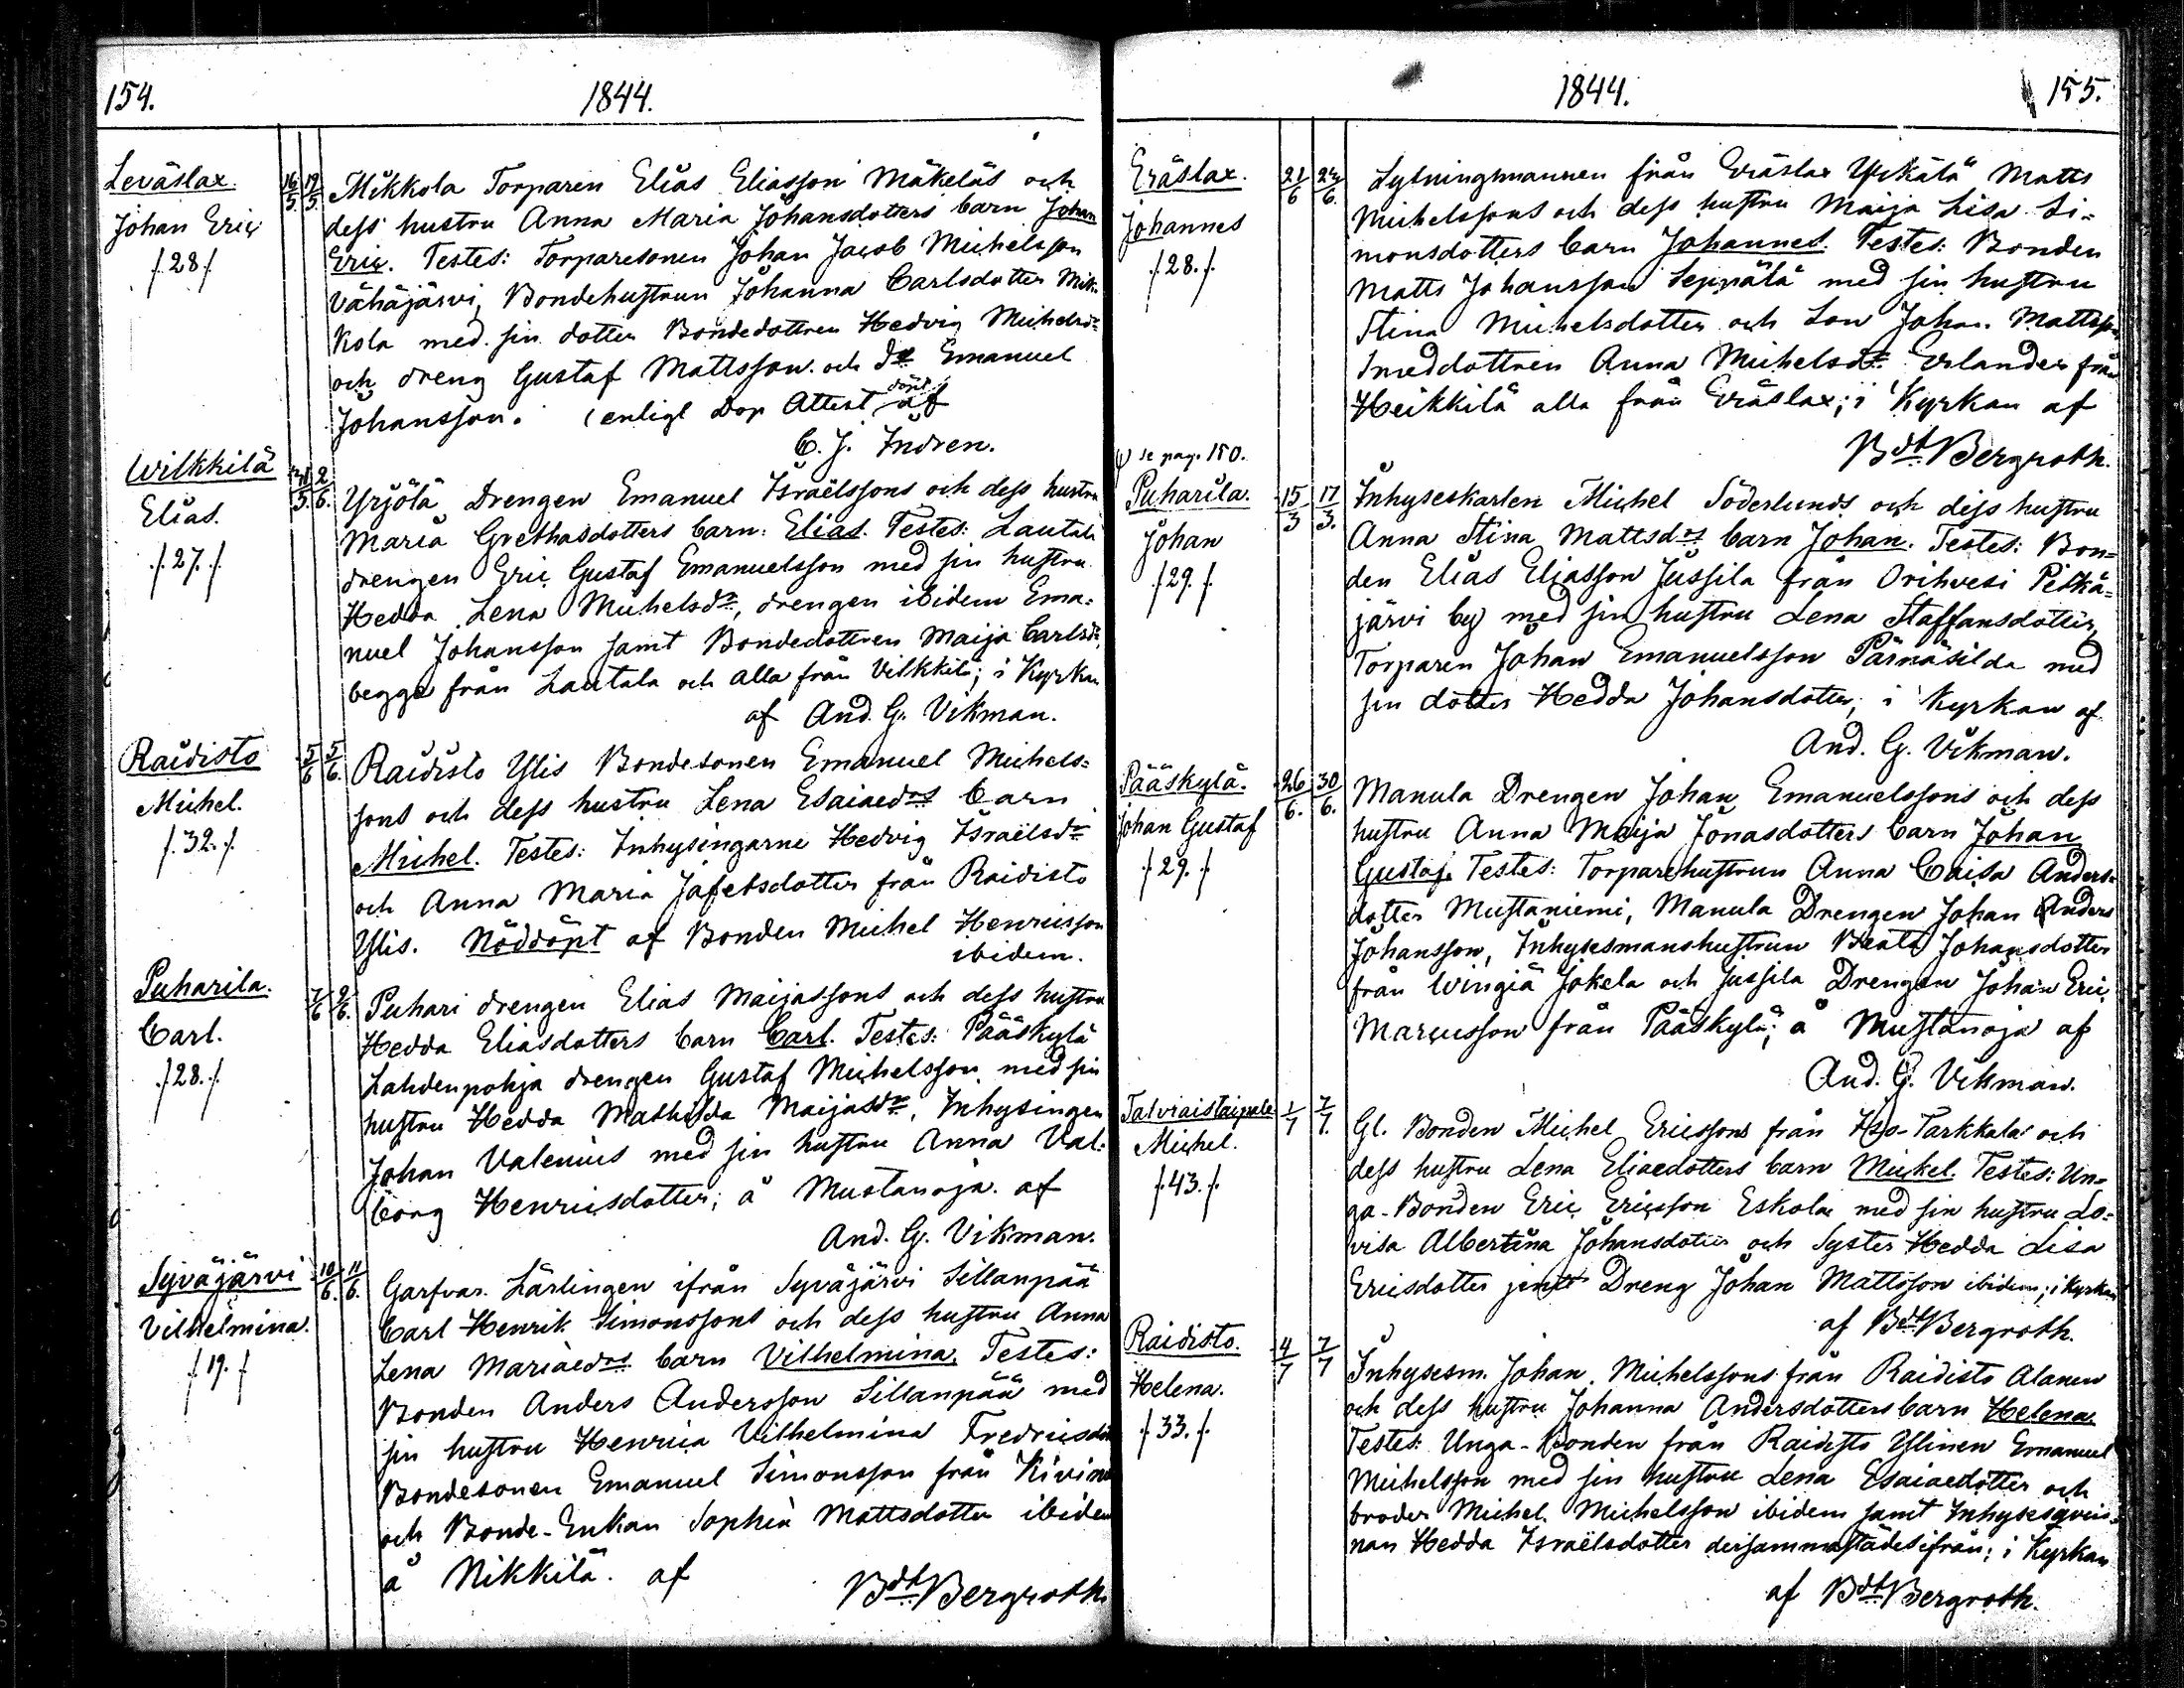 154.
1844.
Leväslax.
Johan Eric
/.28./
16/5. 19/5.
Mikkola Torparen Elias Eliasson Mäkeläs och
dess hustru Anna Maria Johansdotters barn Johan
Eric. Testes: Torparesonen Johan Jacob Michelsson
Vähäjärvi, Bondehustrun Johanna Carlsdotter Mik-
kola med sin dotter Bondedottren Hedvig Michelsdr
och dreng Gustaf Mattsson och do Emanuel
Johansson. (enligt Dop Attest döpt af
C. J. Indren.
Wilkkilä
Elias.
/.27./
31/5. 2/6.
Yrjölä Drengen Emanuel Israëlssons och dess hustru
Maria Grethasdotters barn: Elias. Testes: Lautala
drengen Eric Gustaf Emanuelsson med sin hustru
Hedda Lena Michelsdr, drengen ibidem Ema-
nuel Johansson samt Bondedottren Maija Carlsdr,
begge från Lautala och alla från Vilkkilä; i Kyrkan
af And. G. Vikman.
Raidisto
Michel.
/.32./
5/6 5/6.
Raidisto Ylis Bondesonen Emanuel Michels-
sons och dess hustru Lena Esaiaedrs barn
Michel. Testes: Inhysingarne Hedvig Israëlsdr
och Anna Maria Jafetsdotter från Raidisto
Ylis. Nöddöpt af Bonden Michel Henricsson
ibidem.
Puharila.
Carl.
/.28./
7/6 9/6.
Puhari drengen Elias Maijassons och dess hustru
Hedda Eliasdotters barn Carl. Testes: Pääskylä
Lahdenpohja drengen Gustaf Michelsson med sin
hustru Hedda Mathilda Maijasdr, Inhysingen
Johan Valenius med sin hustru Anna Val-
borg Henricsdotter; å Mustanoja. af
And. G. Vikman.
Syväjärvi
Vilhelmina.
/.19./
10/6. 11/6.
Garfvar. Lärlingen ifrån Syväjärvi Sillanpää
Carl Henrik Simonssons och dess hustru Anna
Lena Mariaedrs barn Vilhelmina. Testes:
Bonden Anders Andersson Sillanpää med
sin hustru Henrica Vilhelmina Fredricsdr
Bondesonen Emanuel Simonsson från
och Bonde-Enkan Sophia Mattsdotter ibidem
å Nikkilä. af
Bdt Bergroth.
1844.
155.
Eräslax.
Johannes
/.28./
22/6 24/6.
Lysningmannen från Eräslax Yrkälä Matts
Michelssons och dess hustru Maija Lisa Si-
monsdotters barn Johannes. Testes: Bonden
Matts Johansson Seppälä med sin hustru
Stina Michelsdotter och Son Johan Mattsson
Smeddottren Anna Michelsdr Erlander från
Heikkilä alla från Eräslax; i Kyrkan af
Bdt Bergroth.
se pag. 150.
Puharila.
Johan
/.29./
15/3 17/3.
Inhyseskarlen Michel Söderlunds och dess hustru
Anna Stina Mattsdrs barn Johan. Testes: Bon-
den Elias Eliasson Jussila från Orihvesi Pitkä-
järvi by med sin hustru Lena Staffansdotter,
Torparen Johan Emanuelsson Pärnäsilda med
sin dotter Hedda Johansdotter; i Kyrkan af
And. G. Vikman.
Pääskylä.
Johan Gustaf
/.29./
26/6. 30/6.
Manula Drengen Johan Emanuelssons och dess
hustru Anna Maija Jonasdotters barn Johan
Gustaf. Testes: Torparehustrun Anna Caisa Anders-
dotter Mustaniemi, Manula Drengen Johan Anders
Johansson, Inhysesmanshustrun Beata Johansdotter
från Wingiä Jokela och Jussila Drengen Johan Eric
Marcusson från Pääskylä; å Mustanoja af
And. G. Vikman.
Talviaistaipale
Michel.
/.43./
1/7 7/7.
Gl. Bonden Michel Ericssons från Iso-Tarkkala och
dess hustru Lena Eliaedotters barn Mickel. Testes: Un-
ga-Bonden Eric Ericsson Eskola med sin hustru Lo-
visa Albertina Johansdotter och Syster Hedda Lisa
Ericsdotter jemte Dreng Johan Mattsson ibidem; i Kyrkan
af Bdt Bergroth.
Raidisto.
Helena.
/.33./
4/7 7/7
Inhysesm. Johan Michelssons från Raidisto Alanen
och dess hustru Johanna Andersdotters barn Helena.
Testes: Unga-Bonden från Raidisto Ylinen Emanuel
Michelsson med sin hustru Lena Esaiaedotter och
broder Michel Michelsson ibidem samt Inhysesqvin-
nan Hedda Israëlsdotter dersammastädesifrån; i Kyrkan
af Bdt Bergroth.